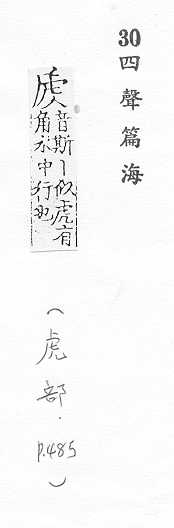 30四聲篇海
音斯丨似虎有
角水中行也
（虎部．p.485）